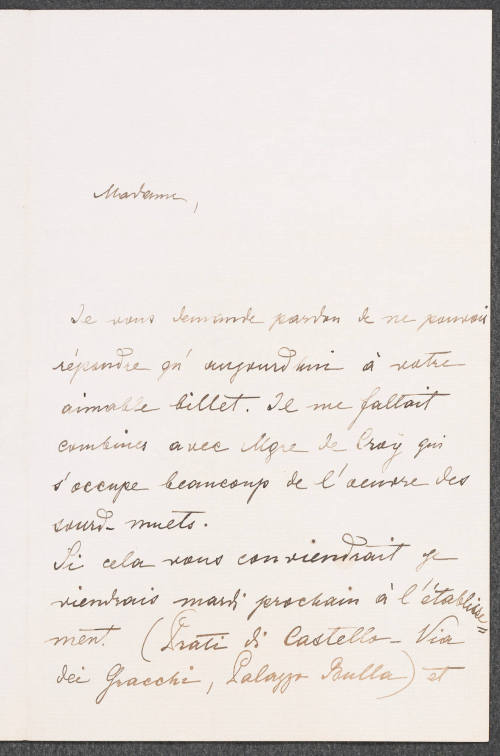 Madame,
Je vous demande pardon de ne pouvoir
répondre qu'aujourd'hui à votre
aimable billet. Il me fallait
combiner avec Mgre de Croÿ qui
s'occupe beaucoup de l'oeuvre des
sourd-muets.
Si cela vous conviendrait je
viendrais mardi prochain à l'établisse=
ment. (Prati di Castello - Via
dei Gracchi, Palazzo Bulla) et